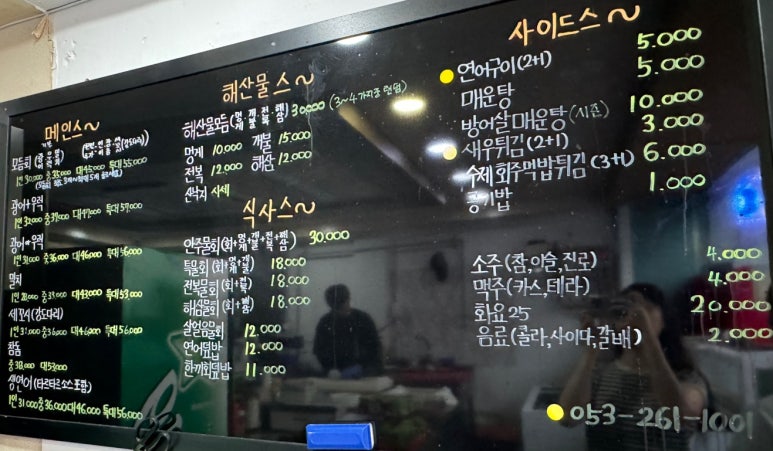 메인스~
모둠회
1인 30,000 중35,000 대45,000 특대55,000
광어+우럭
1인 32,000 중37,000 대47,000 특대57,000
광어+우럭
1인 31,000 중36,000 대46,000 특대56,000
밀치
1인 28,000 중33,000 대43,000 특대53,000
세꼬시(강도다리)
1인 31,000 중36,000 대46,000 특대56,000
참돔
중38,000 대53,000
생연어(타르타르소스포함)
1인 31,000 중36,000 대46,000 특대56,000
해산물스~
해산물모둠(멍게,개불,전복,해삼) 30,000 (3~4가지중 랜덤)
멍게 10,000 개불 15,000
전복 12,000 해삼 12,000
산낙지 시세
식사스~
인주물회(회+멍게+개불+전복+해삼) 30,000
특물회(회+멍게+개불) 18,000
전복물회(회+전복) 18,000
해삼물회(회+해삼) 18,000
살얼음물회 12,000
연어덮밥 12,000
한끼회덮밥 11,000
사이드스~
연어구이(2+1) 5,000
매운탕 5,000
방어살매운탕(시즌) 10,000
새우튀김(2+1) 3,000
수제회주먹밥튀김(3+1) 6,000
공기밥 1,000
소주(참,이슬,진로) 4,000
맥주(카스,테라) 4,000
화요25 20,000
음료(콜라,사이다,갈배) 2,000
053-261-1001